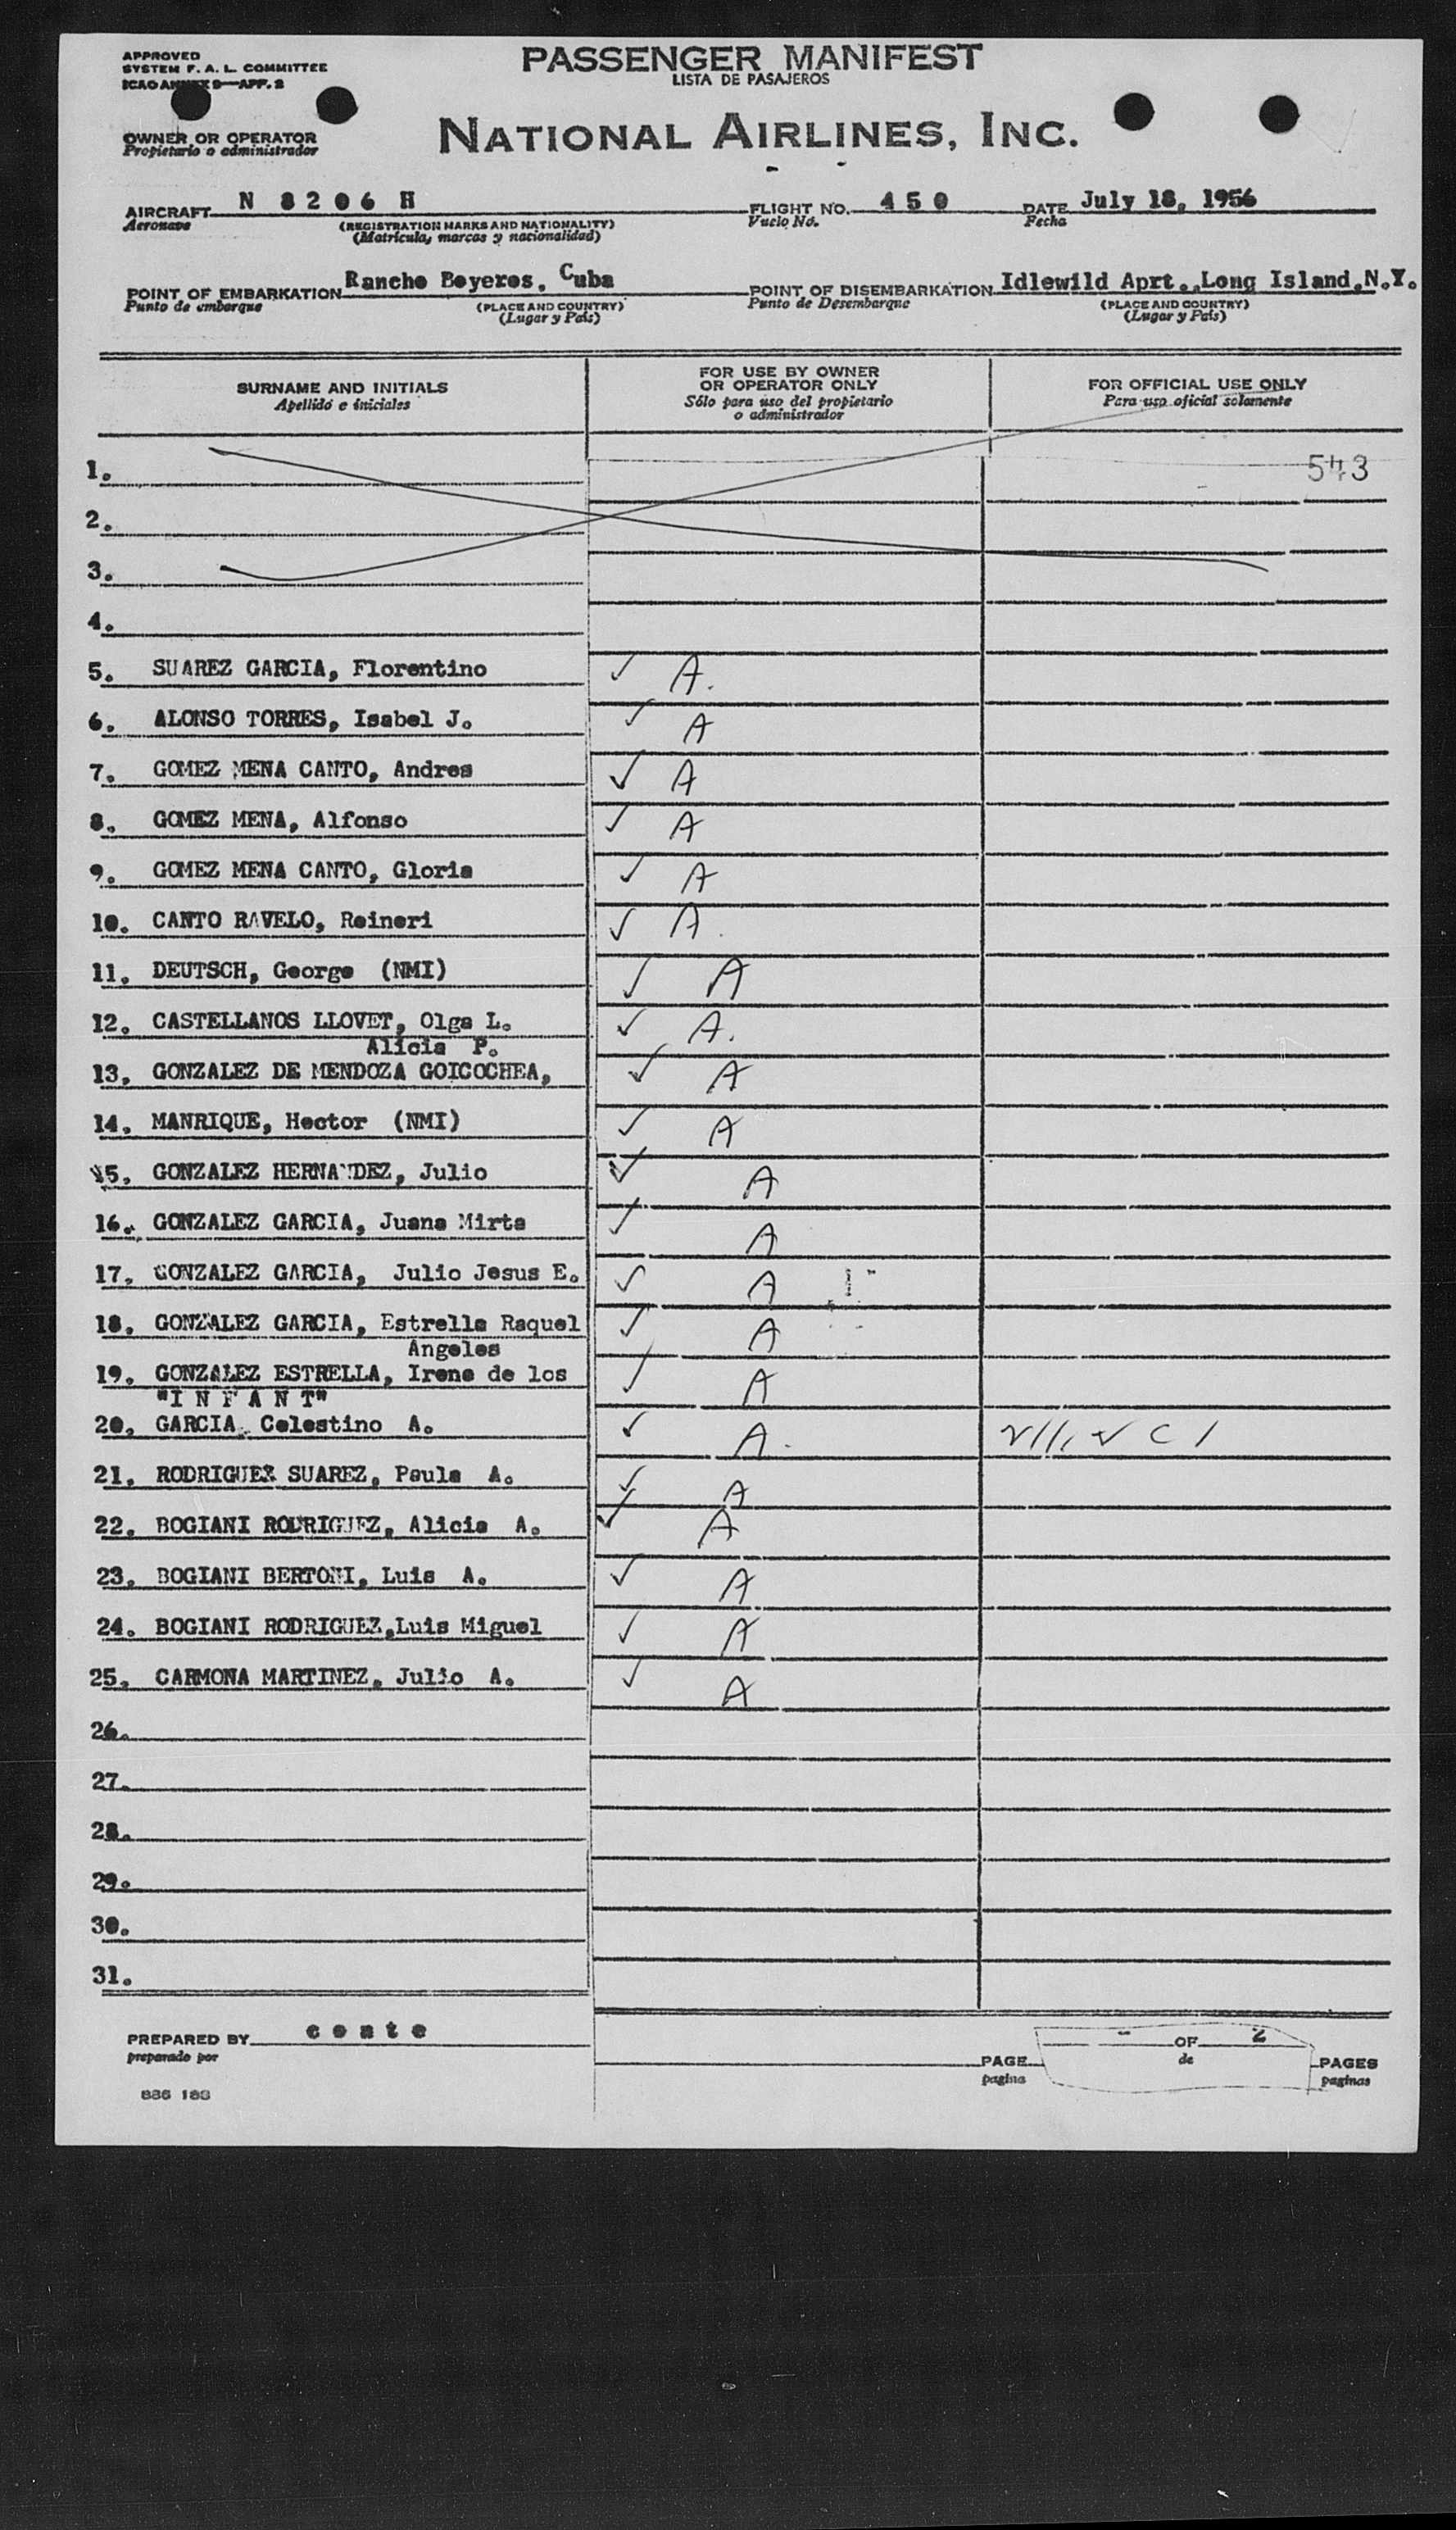 APPROVED
SYSTEM F. A. L. COMMITTEE
ICAO ANNEX 9—APP. 2
PASSENGER MANIFEST
LISTA DE PASAJEROS
OWNER OR OPERATOR
Propietario o administrador
NATIONAL AIRLINES, INC.
AIRCRAFT N 8206 H FLIGHT NO. 450 DATE July 18, 1956
Aeronave (REGISTRATION MARKS AND NATIONALITY) Vuelo No. Fecha
(Matricula, marcas y nacionalidad)
POINT OF EMBARKATION Rancho Boyeros, Cuba POINT OF DISEMBARKATION Idlewild Aprt., Long Island, N.Y.
Punto de embarque (PLACE AND COUNTRY) Punto de Desembarque (PLACE AND COUNTRY)
(Lugar y País) (Lugar y País)
SURNAME AND INITIALS
Apellido e iniciales
FOR USE BY OWNER
OR OPERATOR ONLY
Sólo para uso del propietario
o administrador
FOR OFFICIAL USE ONLY
Para uso oficial solamente
1. 543
2.
3.
4.
5. SUAREZ GARCIA, Florentino ✓ A.
6. ALONSO TORRES, Isabel J. ✓ A
7. GOMEZ MENA CANTO, Andres ✓ A
8. GOMEZ MENA, Alfonso ✓ A
9. GOMEZ MENA CANTO, Gloria ✓ A
10. CANTO RAVELO, Reineri ✓ A.
11. DEUTSCH, George (NMI) ✓ A
12. CASTELLANOS LLOVET, Olga L. ✓ A.
Alicia P.
13. GONZALEZ DE MENDOZA GOICOCHEA, ✓ A
14. MANRIQUE, Hector (NMI) ✓ A
15. GONZALEZ HERNANDEZ, Julio ✓ A
16. GONZALEZ GARCIA, Juana Mirta ✓ A
17. GONZALEZ GARCIA, Julio Jesus E. ✓ A
18. GONZALEZ GARCIA, Estrella Raquel ✓ A
Angeles
19. GONZALEZ ESTRELLA, Irene de los ✓ A
"I N F A N T"
20. GARCIA, Celestino A. ✓ A.
21. RODRIGUEZ SUAREZ, Paula A. ✓ A
22. BOGIANI RODRIGUEZ, Alicia A. ✓ A
23. BOGIANI BERTONI, Luis A. ✓ A
24. BOGIANI RODRIGUEZ, Luis Miguel ✓ A
25. CARMONA MARTINEZ, Julio A. ✓ A
26.
27.
28.
29.
30.
31.
PREPARED BY
preparado por
PAGE OF 2 PAGES
pagina de paginas